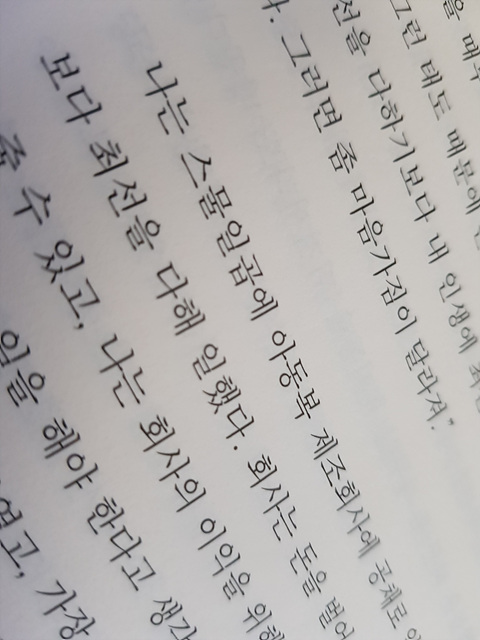 을 매두
그런 태도 때문에
선을 다하기보다 내 인생에 최
다. 그러면 좀 마음가짐이 달라져."
나는 스물일곱에 아동복 제조회사에 공채로
보다 최선을 다해 일했다. 회사는 돈을 벌어
줄 수 있고, 나는 회사의 이익을 위해
일을 해야 한다고 생각
였고, 가장